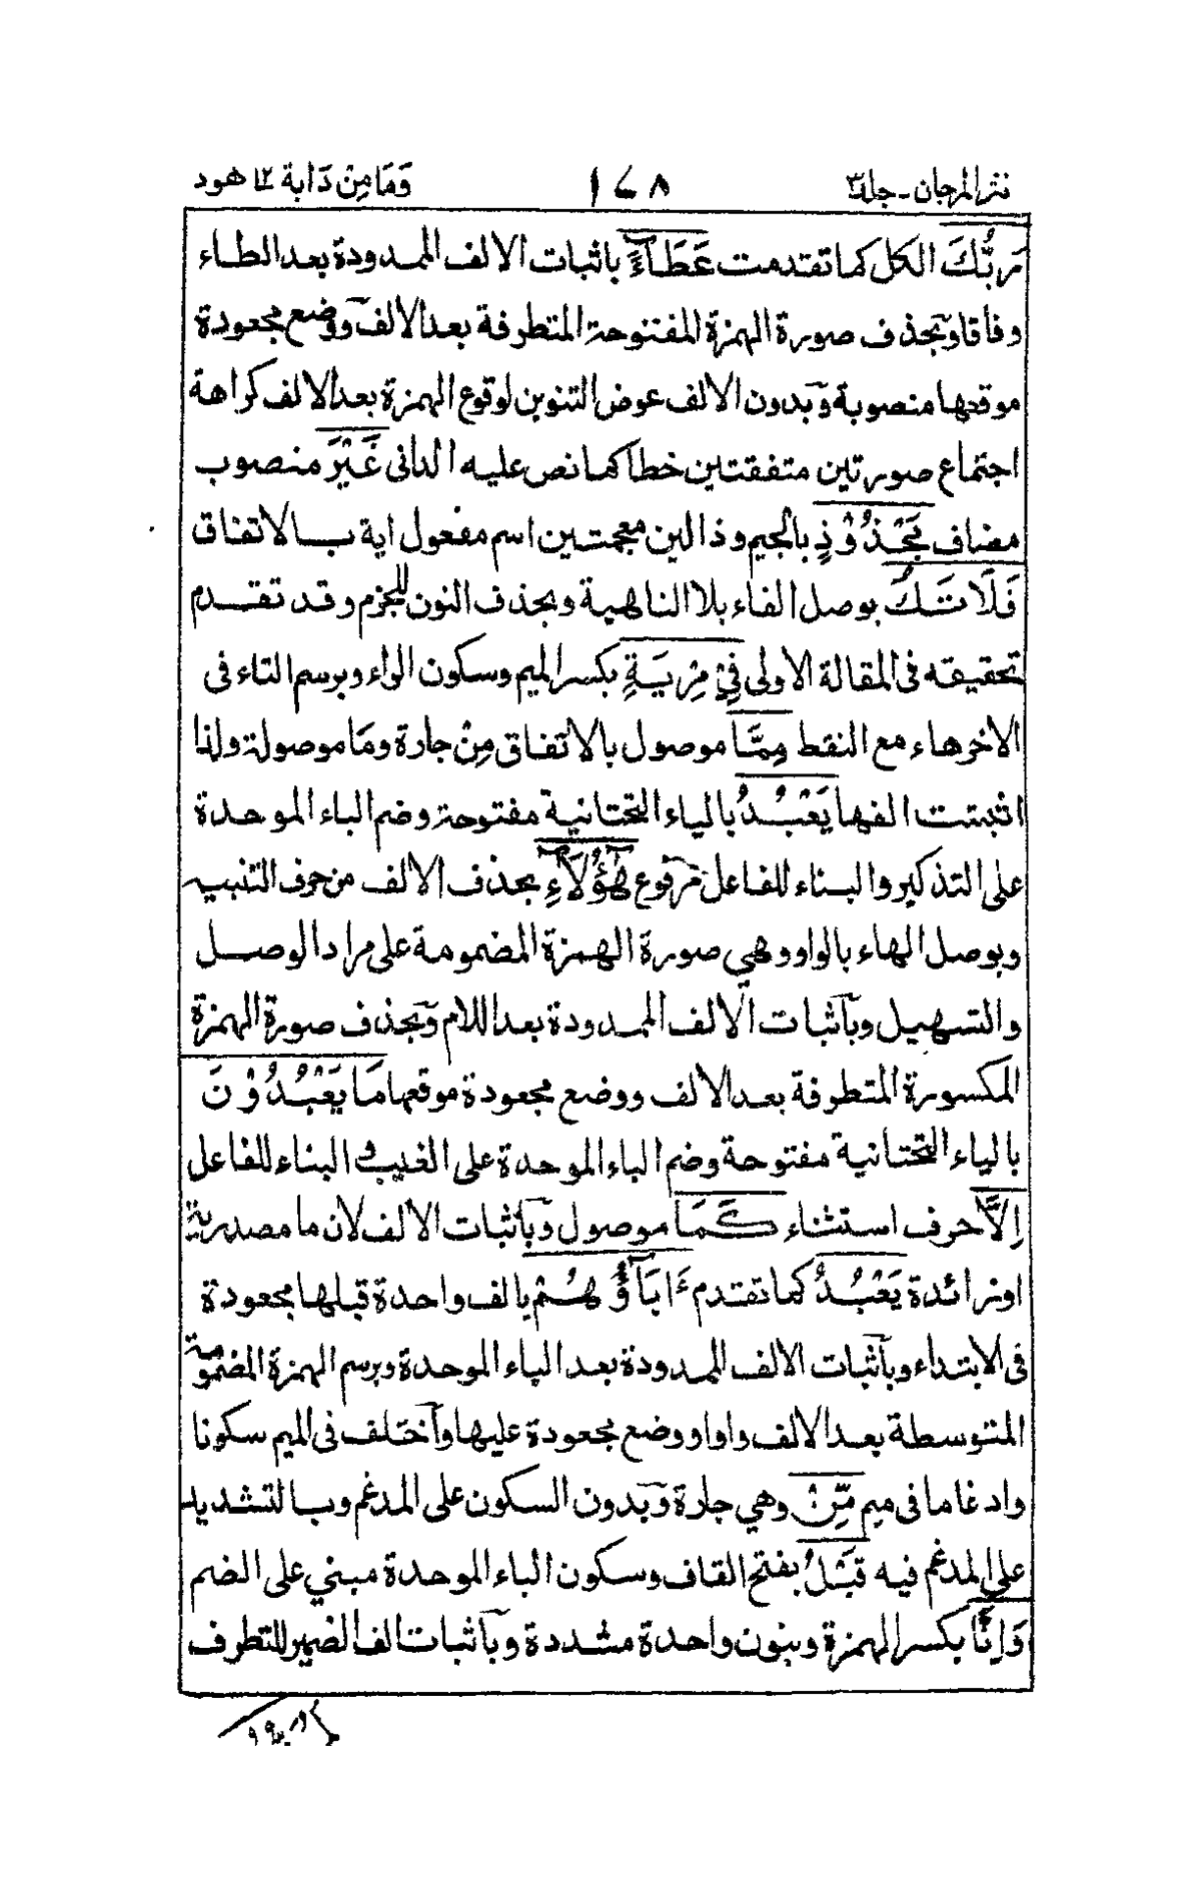 نثر المرجان - جلد ٣ ١٧٨ وَمَا مِنْ دَابة ١٢ هود
رَبُّكَ الكل كما تقدمت عَطَآءً باثبات الالف الممدودة بعد الطاء
وفاقا وبحذف صورة الهمزة المفتوحة المتطرفة بعد الالف ووضع مجعودة
موقعها منصوبة وبدون الالف عوض التنوين لوقوع الهمزة بعد الالف كراهة
اجتماع صورتين متفقتين خطا كما نص عليه الدانى غَيْرَ منصوب
مضاف مَجْذُوْذٍ بالجيم وذالين معجمتين اسم مفعول اية بالاتفاق
فَلَا تَكُ بوصل الفاء بلا الناهية وبحذف النون للجزم وقد تقدم
تحقيقه فى المقالة الاولى فِيْ مِرْيَةٍ بكسر الميم وسكون الراء وبرسم التاء فى
الاخر هاء مع النقط مِمَّا موصول بالاتفاق مِنْ جارة ومَا موصولة ولذا
اثبتت الفها يَعْبُدُ بالياء التحتانية مفتوحة وضم الباء الموحدة
على التذكير والبناء للفاعل مرفوع هٰٓؤُلَآءِ بحذف الالف من حرف التنبيه
وبوصل الهاء بالواو وهي صورة الهمزة المضمومة على مراد الوصل
والتسهيل وباثبات الالف الممدودة بعد اللام وبحذف صورة الهمزة
المكسورة المتطرفة بعد الالف ووضع مجعودة موقعها مَا يَعْبُدُوْنَ
بالياء التحتانية مفتوحة وضم الباء الموحدة على الغيب والبناء للفاعل
اِلَّا حرف استثناء كَمَا موصول وباثبات الالف لان ما مصدرية
او زائدة يَعْبُدُ كما تقدم ءَابَآؤُهُمْ بالف واحدة قبلها مجعودة
فى الابتداء وباثبات الالف الممدودة بعد الباء الموحدة وبرسم الهمزة المضمومة
المتوسطة بعد الالف واوا ووضع مجعودة عليها واختلف فى الميم سكونا
وادغاما فى ميم مِّنْ وهي جارة وبدون السكون على المدغم وبالتشديد
على المدغم فيه قَبْلُ بفتح القاف وسكون الباء الموحدة مبني على الضم
وَاِنَّا بكسر الهمزة وبنون واحدة مشددة وباثبات الف الضمير للتطرف